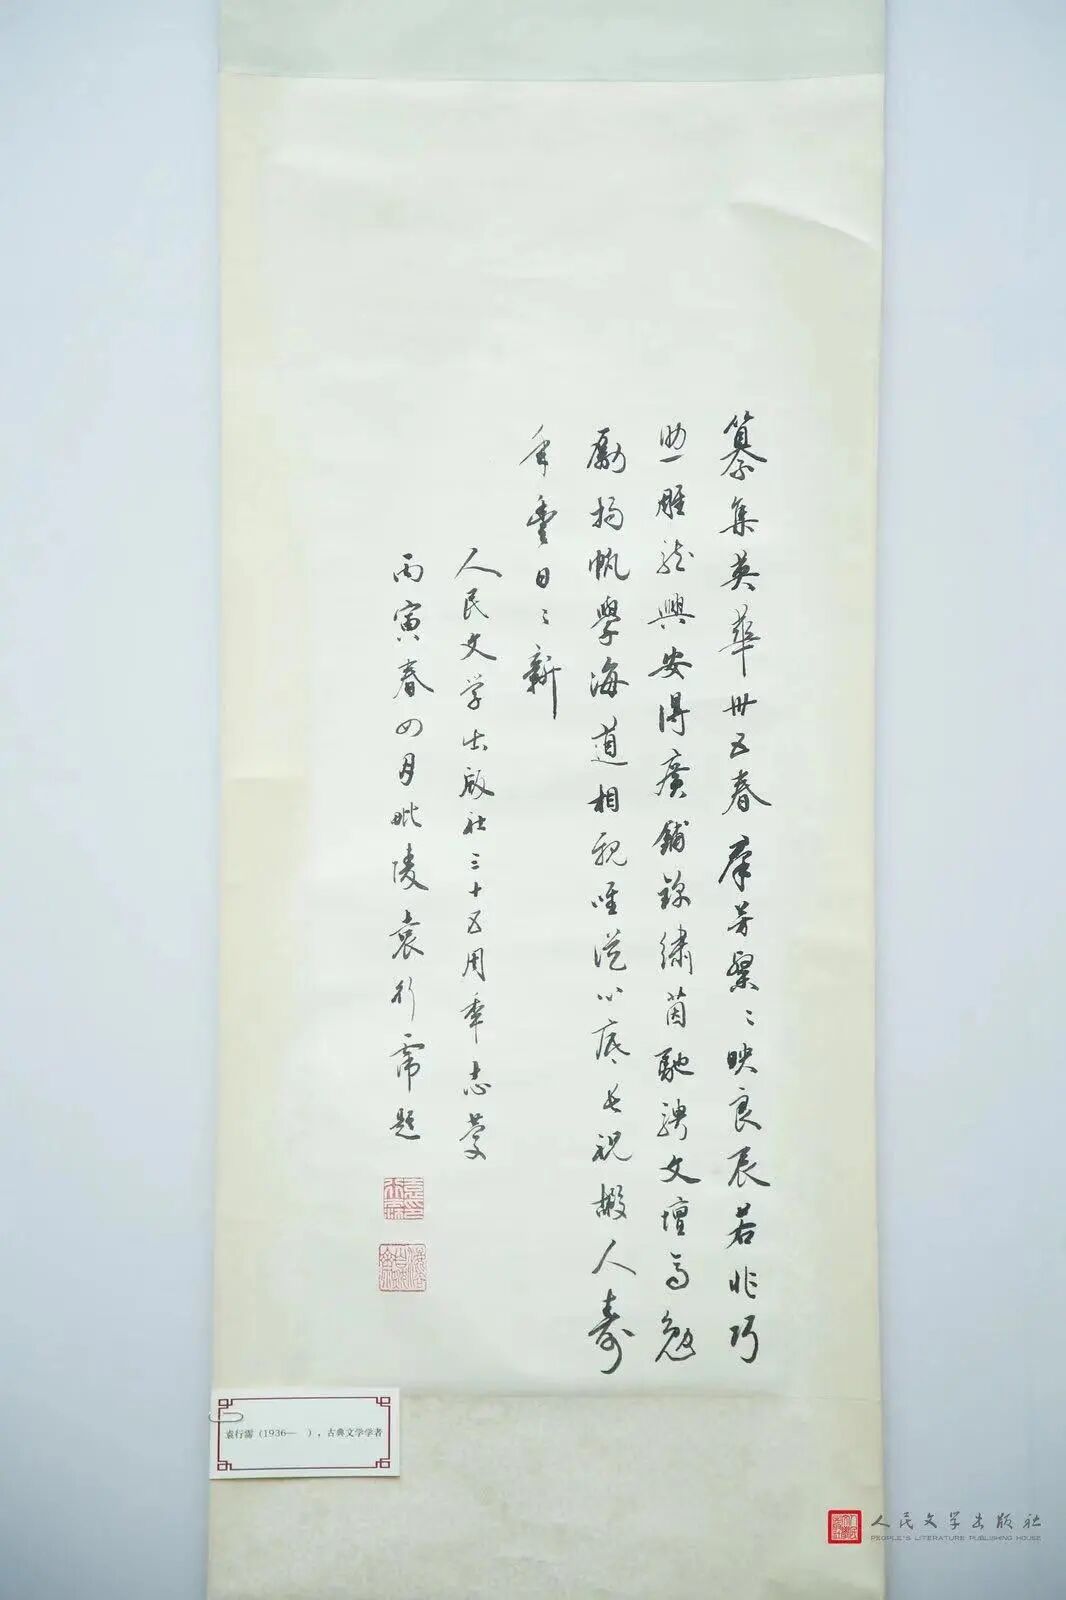 纂集英華卅五春羣芳粲〻映良辰若非巧
助雕龍興安得廣鋪錦繡茵馳騁文壇高勉
勵揚帆學海道相親唯從心底長祝嘏人壽
年豐日〻新
人民文学出版社三十五周年志慶
丙寅春四月毗陵袁行霈題
袁行霈（1936—　），古典文学学者
人民文学出版社
PEOPLE'S LITERATURE PUBLISHING HOUSE